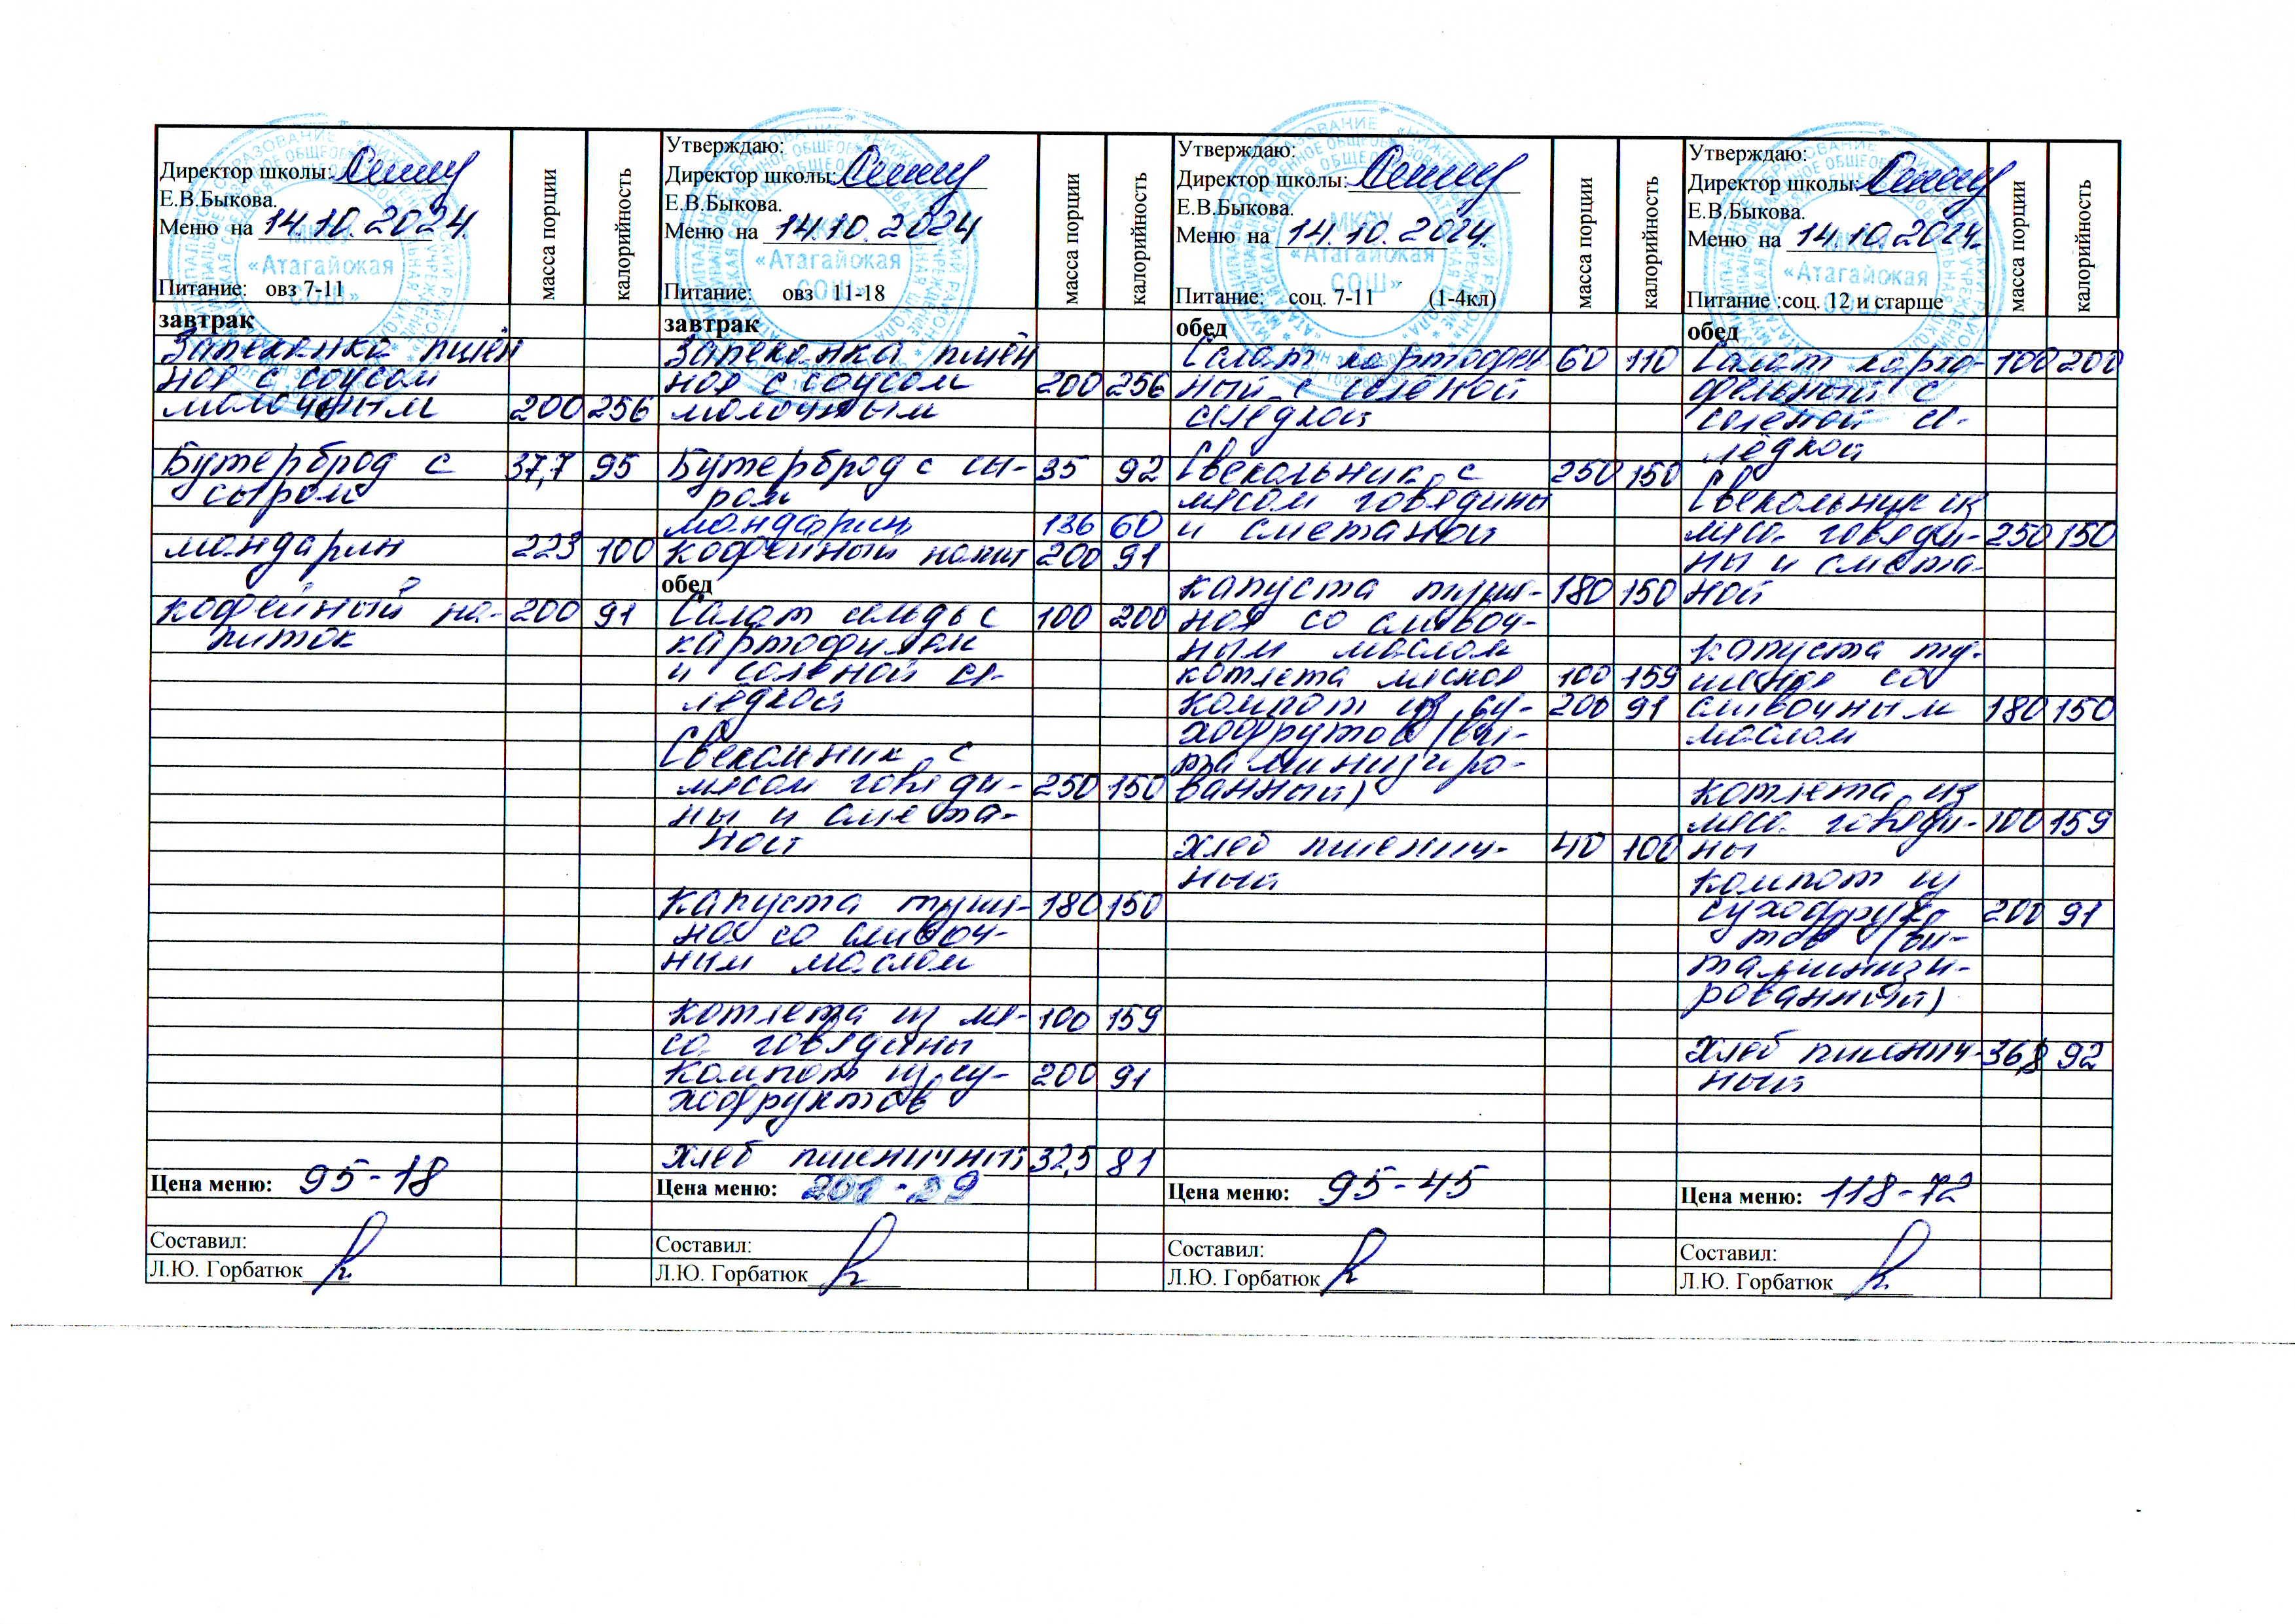 Директор школы:
Е.В.Быкова.
Меню на 14.10.2024
Питание: овз 7-11
масса порции
калорийность
завтрак
Запеканка пшён
ная с соусом
молочным 200 256
Бутерброд с 37,7 95
сыром
мандарин 223 100
кофейный на- 200 91
питок
Цена меню: 95-18
Составил:
Л.Ю. Горбатюк
Утверждаю:
Директор школы:
Е.В.Быкова.
Меню на 14.10.2024
Питание: овз 11-18
масса порции
калорийность
завтрак
Запеканка пшён
ная с соусом 200 256
молочным
Бутерброд с сы- 35 92
ром
мандарин 136 60
кофейный напит 200 91
обед
Салат сельдь с 100 200
картофелем
и соленой се-
лёдкой
Свекольник с
мясом говяди- 250 150
ны и смета-
ной
капуста туше- 180 150
ная со сливоч-
ным маслом
котлета из мя- 100 159
са говядины
Компот из су- 200 91
хофруктов
хлеб пшеничный 32,5 81
Цена меню:
Составил:
Л.Ю. Горбатюк
Утверждаю:
Директор школы:
Е.В.Быкова.
Меню на 14.10.2024.
Питание: соц. 7-11 (1-4кл)
масса порции
калорийность
обед
Салат картофель 60 110
ный с солёной
селедкой
Свекольник с 250 150
мясом говядины
и сметаной
капуста туше- 180 150
ная со сливоч-
ным маслом
котлета мясная 100 159
Компот из су- 200 91
хофрутов (ви-
таминизиро-
ванный)
хлеб пшенич- 40 100
ный
Цена меню: 95-45
Составил:
Л.Ю. Горбатюк
Утверждаю:
Директор школы:
Е.В.Быкова.
Меню на 14.10.2024.
Питание :соц. 12 и старше
масса порции
калорийность
обед
Салат карто- 100 200
фельный с
соленой се-
лёдкой
Свекольник
мяса говяди- 250 150
ны и смета-
ной
капуста ту-
шеная со
сливочным 180 150
маслом
котлета из
мяса говяди- 100 159
ны
компот из
сухофрук 200 91
тов (ви-
таминизи-
рованный)
хлеб пшенич- 36,8 92
ный
Цена меню: 118-72
Составил:
Л.Ю. Горбатюк
МКОУ
«Атагайская
СОШ»